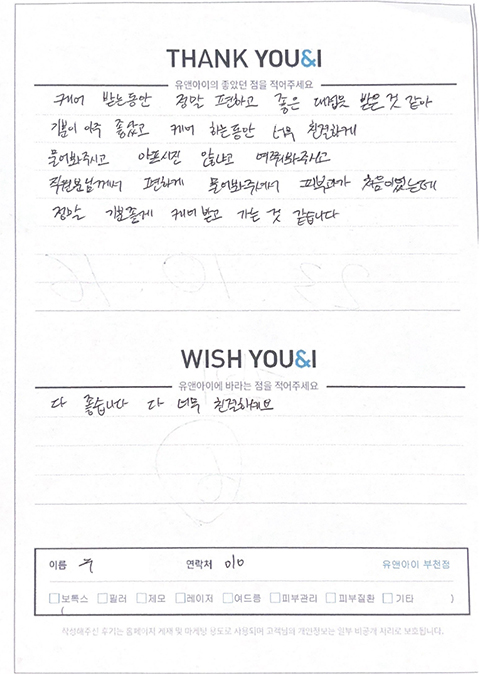 THANK YOU&I
유앤아이의 좋았던 점을 적어주세요
케어 받는동안 정말 편하고 좋은 대접을 받은 것 같아
기분이 아주 좋았고 케어 하는동안 너무 친절하게
물어봐주시고 아프시진 않냐고 여쭤봐주시고
직원분님께서 편하게 물어봐주셔서 피부과가 처음이었는데
정말 기분좋게 케어받고 가는 것 같습니다
23. 10. 16
WISH YOU&I
유앤아이에 바라는 점을 적어주세요
다 좋습니다 다 너무 친절하세요
이름 연락처 010 유앤아이 부천점
보톡스 필러 제모 레이저 여드름 피부관리 피부질환 기타 )
(
작성해주신 후기는 홈페이지 게재 및 마케팅 용도로 사용되며 고객님의 개인정보는 일부 비공개 처리로 보호됩니다.